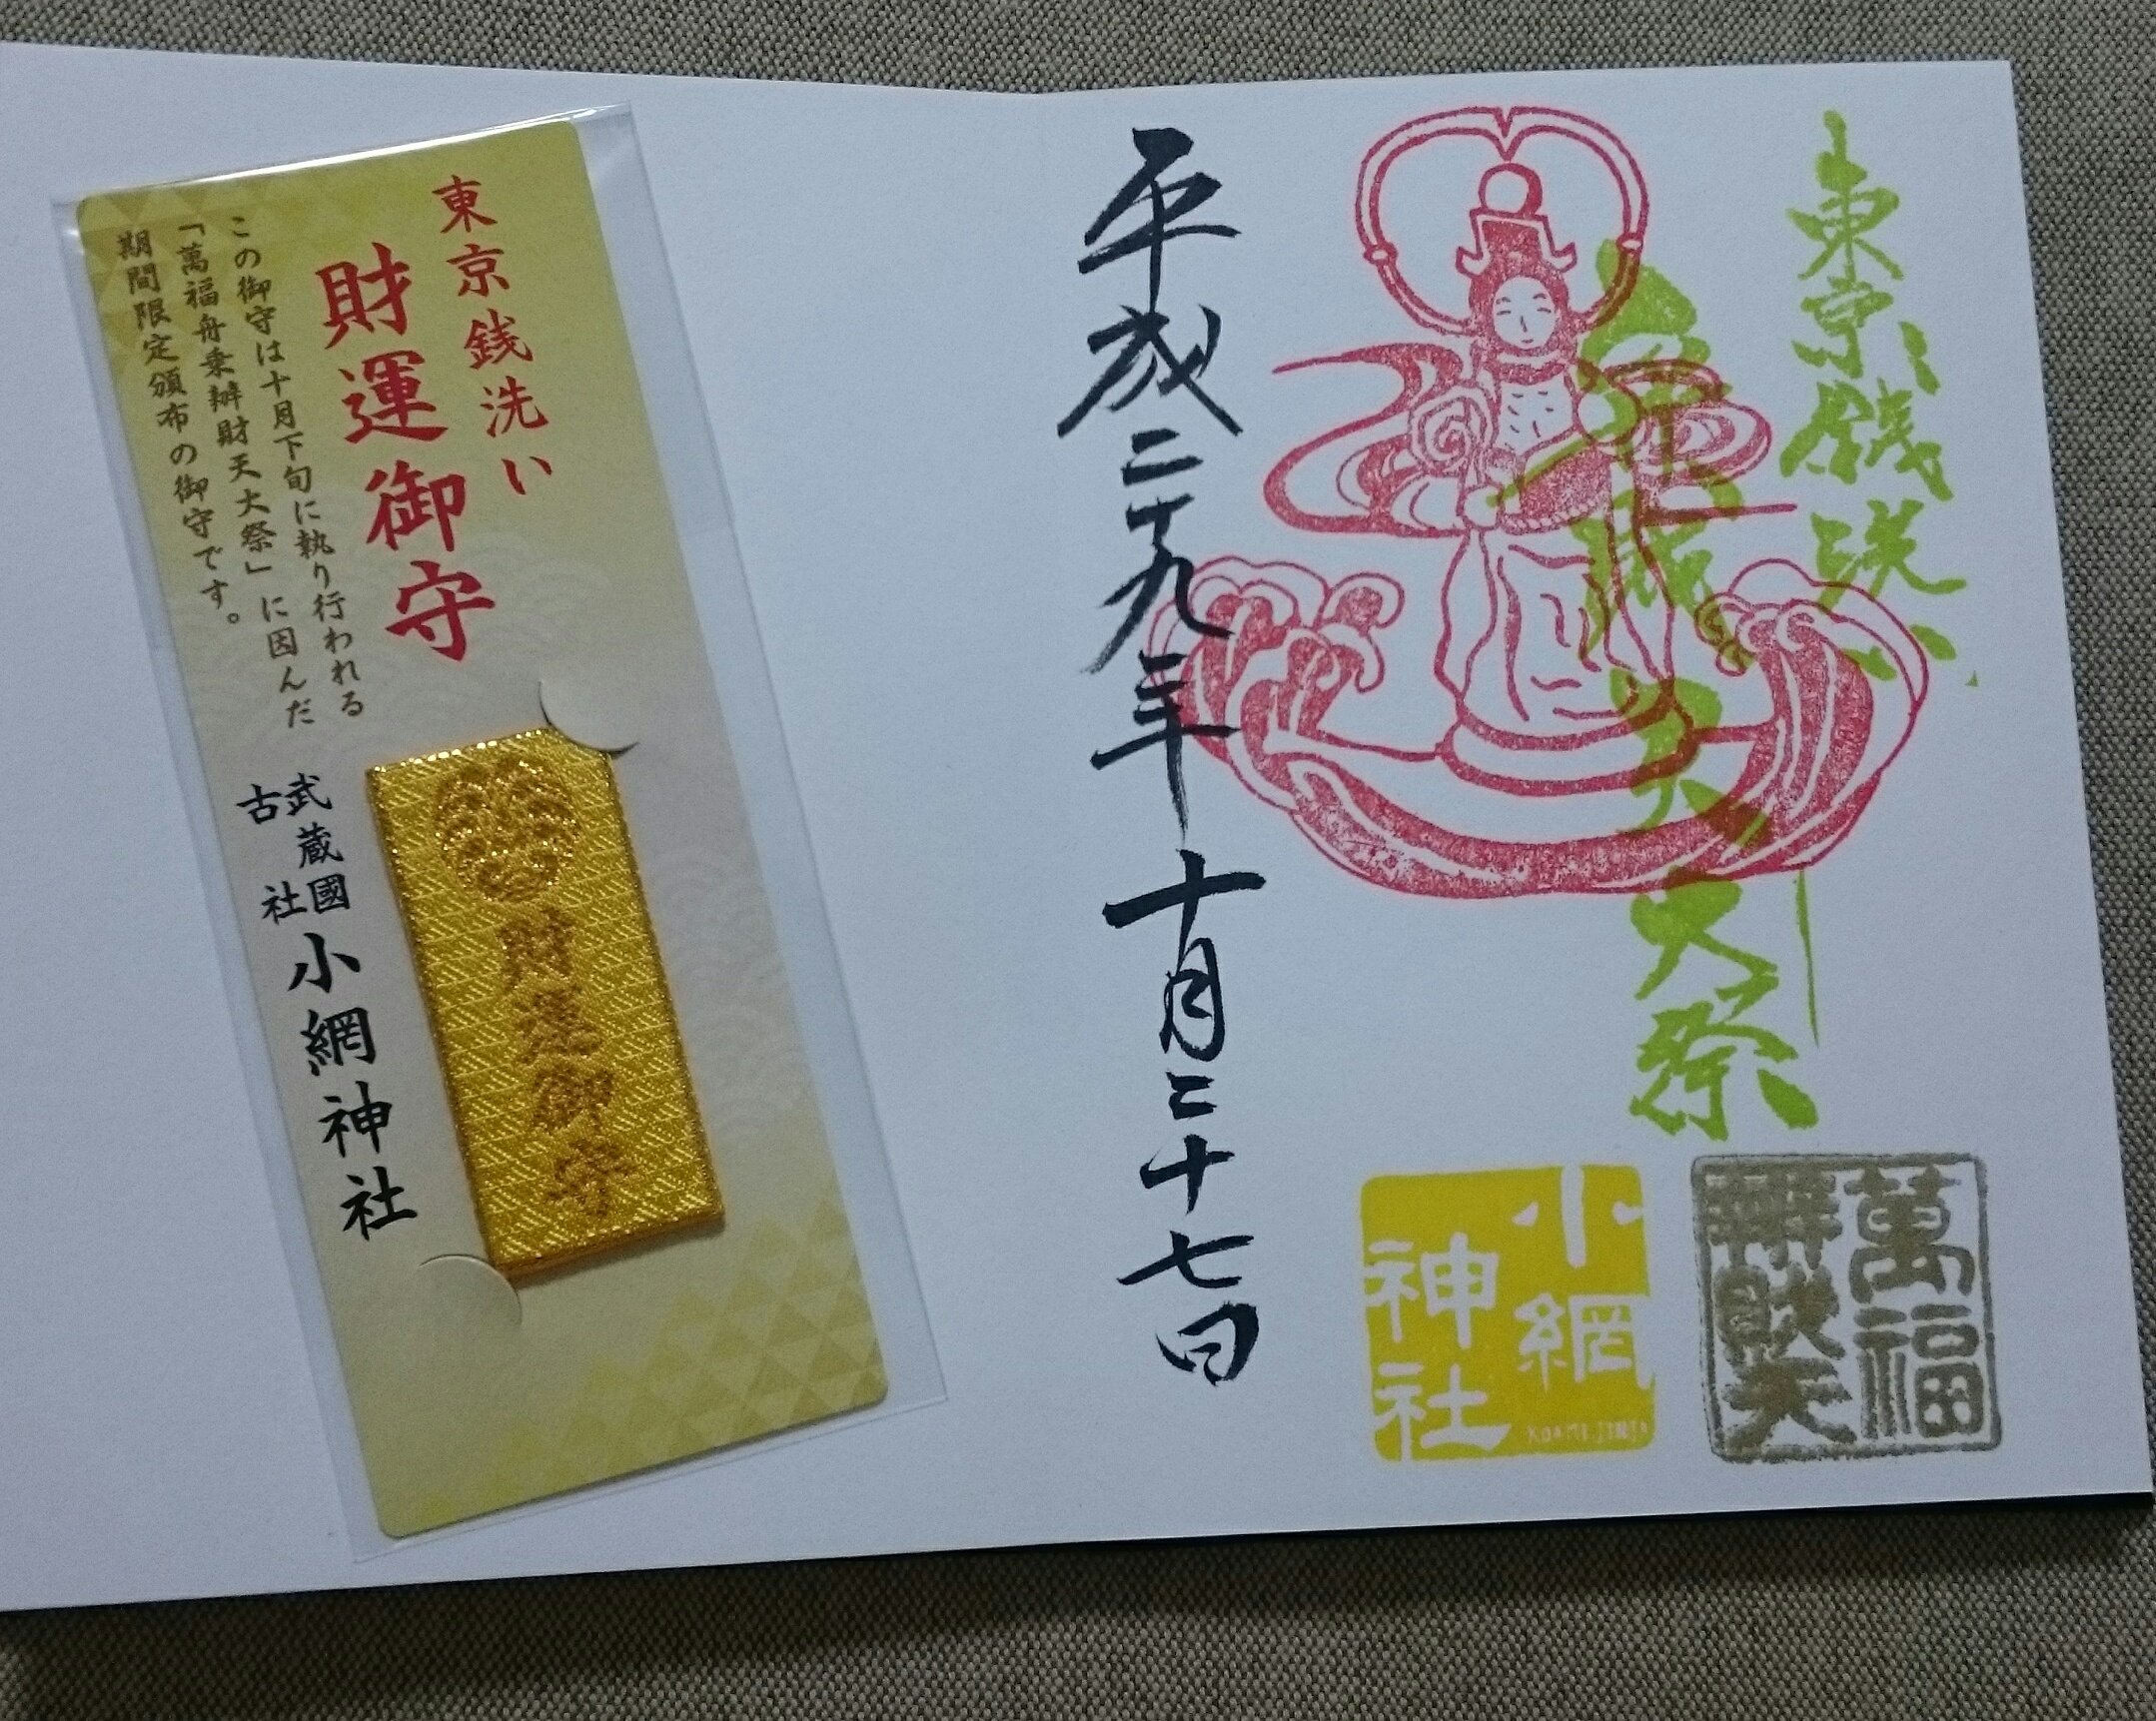 東京銭洗い
弁財天大祭
平成二十九年十月二十七日
萬福
辨財天
小網
神社
KOAMI JINJA
東京銭洗い
財運御守
この御守は十月下旬に執り行われる
「萬福舟乗辨財天大祭」に因んだ
期間限定頒布の御守です。
武蔵國
古社
小網神社
財運御守